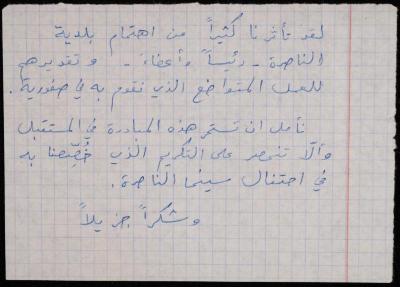 لقد تأثرنا كثيراً من اهتمام بلدية
الناصرة - رئيساً وأعضاءً - وتقديرهم
للعمل المتواضع الذي نقوم به في صفورية.
نأمل ان تستمر هذه المبادرة في المستقبل
وألّا تنحصر على التكريم الذي خُصِّصنا به
في احتفال سينما الناصرة.
وشكراً جزيلاً